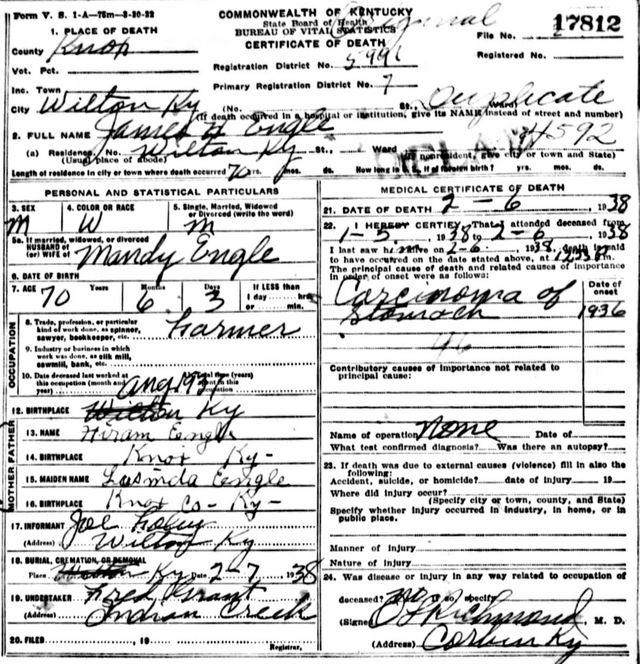 Form V. S. 1-A—75m—3-30-32
COMMONWEALTH OF KENTUCKY
State Board of Health
BUREAU OF VITAL STATISTICS
CERTIFICATE OF DEATH
Original
File No. 17812
Registered No.
1. PLACE OF DEATH
County Knox
Registration District No. 5991
Vot. Pct.
Primary Registration District No. 7
Inc. Town
City Wilton Ky (No. St., Ward)
Duplicate
(If death occurred in a hospital or institution, give its NAME instead of street and number)
2. FULL NAME James H Engle
4592
DELAYED
(a) Residence, No. Wilton Ky St., Ward
(Usual place of abode) (If nonresident, give city or town and State)
Length of residence in city or town where death occurred 70 yrs. mos. ds. How long in U. S. if of foreign birth? yrs. mos. ds.
PERSONAL AND STATISTICAL PARTICULARS
3. SEX M
4. COLOR OR RACE W
5. Single, Married, Widowed or Divorced (write the word) m
5a. If married, widowed, or divorced
HUSBAND of (or) WIFE of Mandy Engle
6. DATE OF BIRTH
7. AGE 70 Years 6 Months 3 Days If LESS than 1 day hrs. or min.
OCCUPATION
8. Trade, profession, or particular kind of work done, as spinner, sawyer, bookkeeper, etc. Farmer
9. Industry or business in which work was done, as silk mill, sawmill, bank, etc.
10. Date deceased last worked at this occupation (month and year) Aug 193
12. BIRTHPLACE Wilton Ky
MOTHER FATHER
13. NAME Hiram Engle
14. BIRTHPLACE Knox Ky-
15. MAIDEN NAME Lusinda Eengle
16. BIRTHPLACE Knox Co- Ky-
17. INFORMANT Joe
(Address) Wilton Ky
18. BURIAL, CREMATION, OR REMOVAL
Place Wilton Ky Date 2-7 1938
19. UNDERTAKER Fred Grant
Indian Creek
20. FILED , 19 Registrar.
MEDICAL CERTIFICATE OF DEATH
21. DATE OF DEATH 2-6 1938
22. I HEREBY CERTIFY, That I attended deceased from
1-5 1938 to 2-6 1938
I last saw him alive on 2-6 1938, death is said
to have occurred on the date stated above, at m.
The principal cause of death and related causes of importance
in order of onset were as follows:
Date of onset
Carcinoma of
Stomach 1936
46
Contributory causes of importance not related to
principal cause:
Name of operation None Date of
What test confirmed diagnosis? Was there an autopsy?
23. If death was due to external causes (violence) fill in also the
following:
Accident, suicide, or homicide? date of injury 19
Where did injury occur?
(Specify city or town, county, and State)
Specify whether injury occurred in industry, in home, or in
public place.
Manner of injury
Nature of injury
24. Was disease or injury in any way related to occupation of
deceased? no If so, specify
(Signed) Richmond M. D.
(Address) Corbin Ky